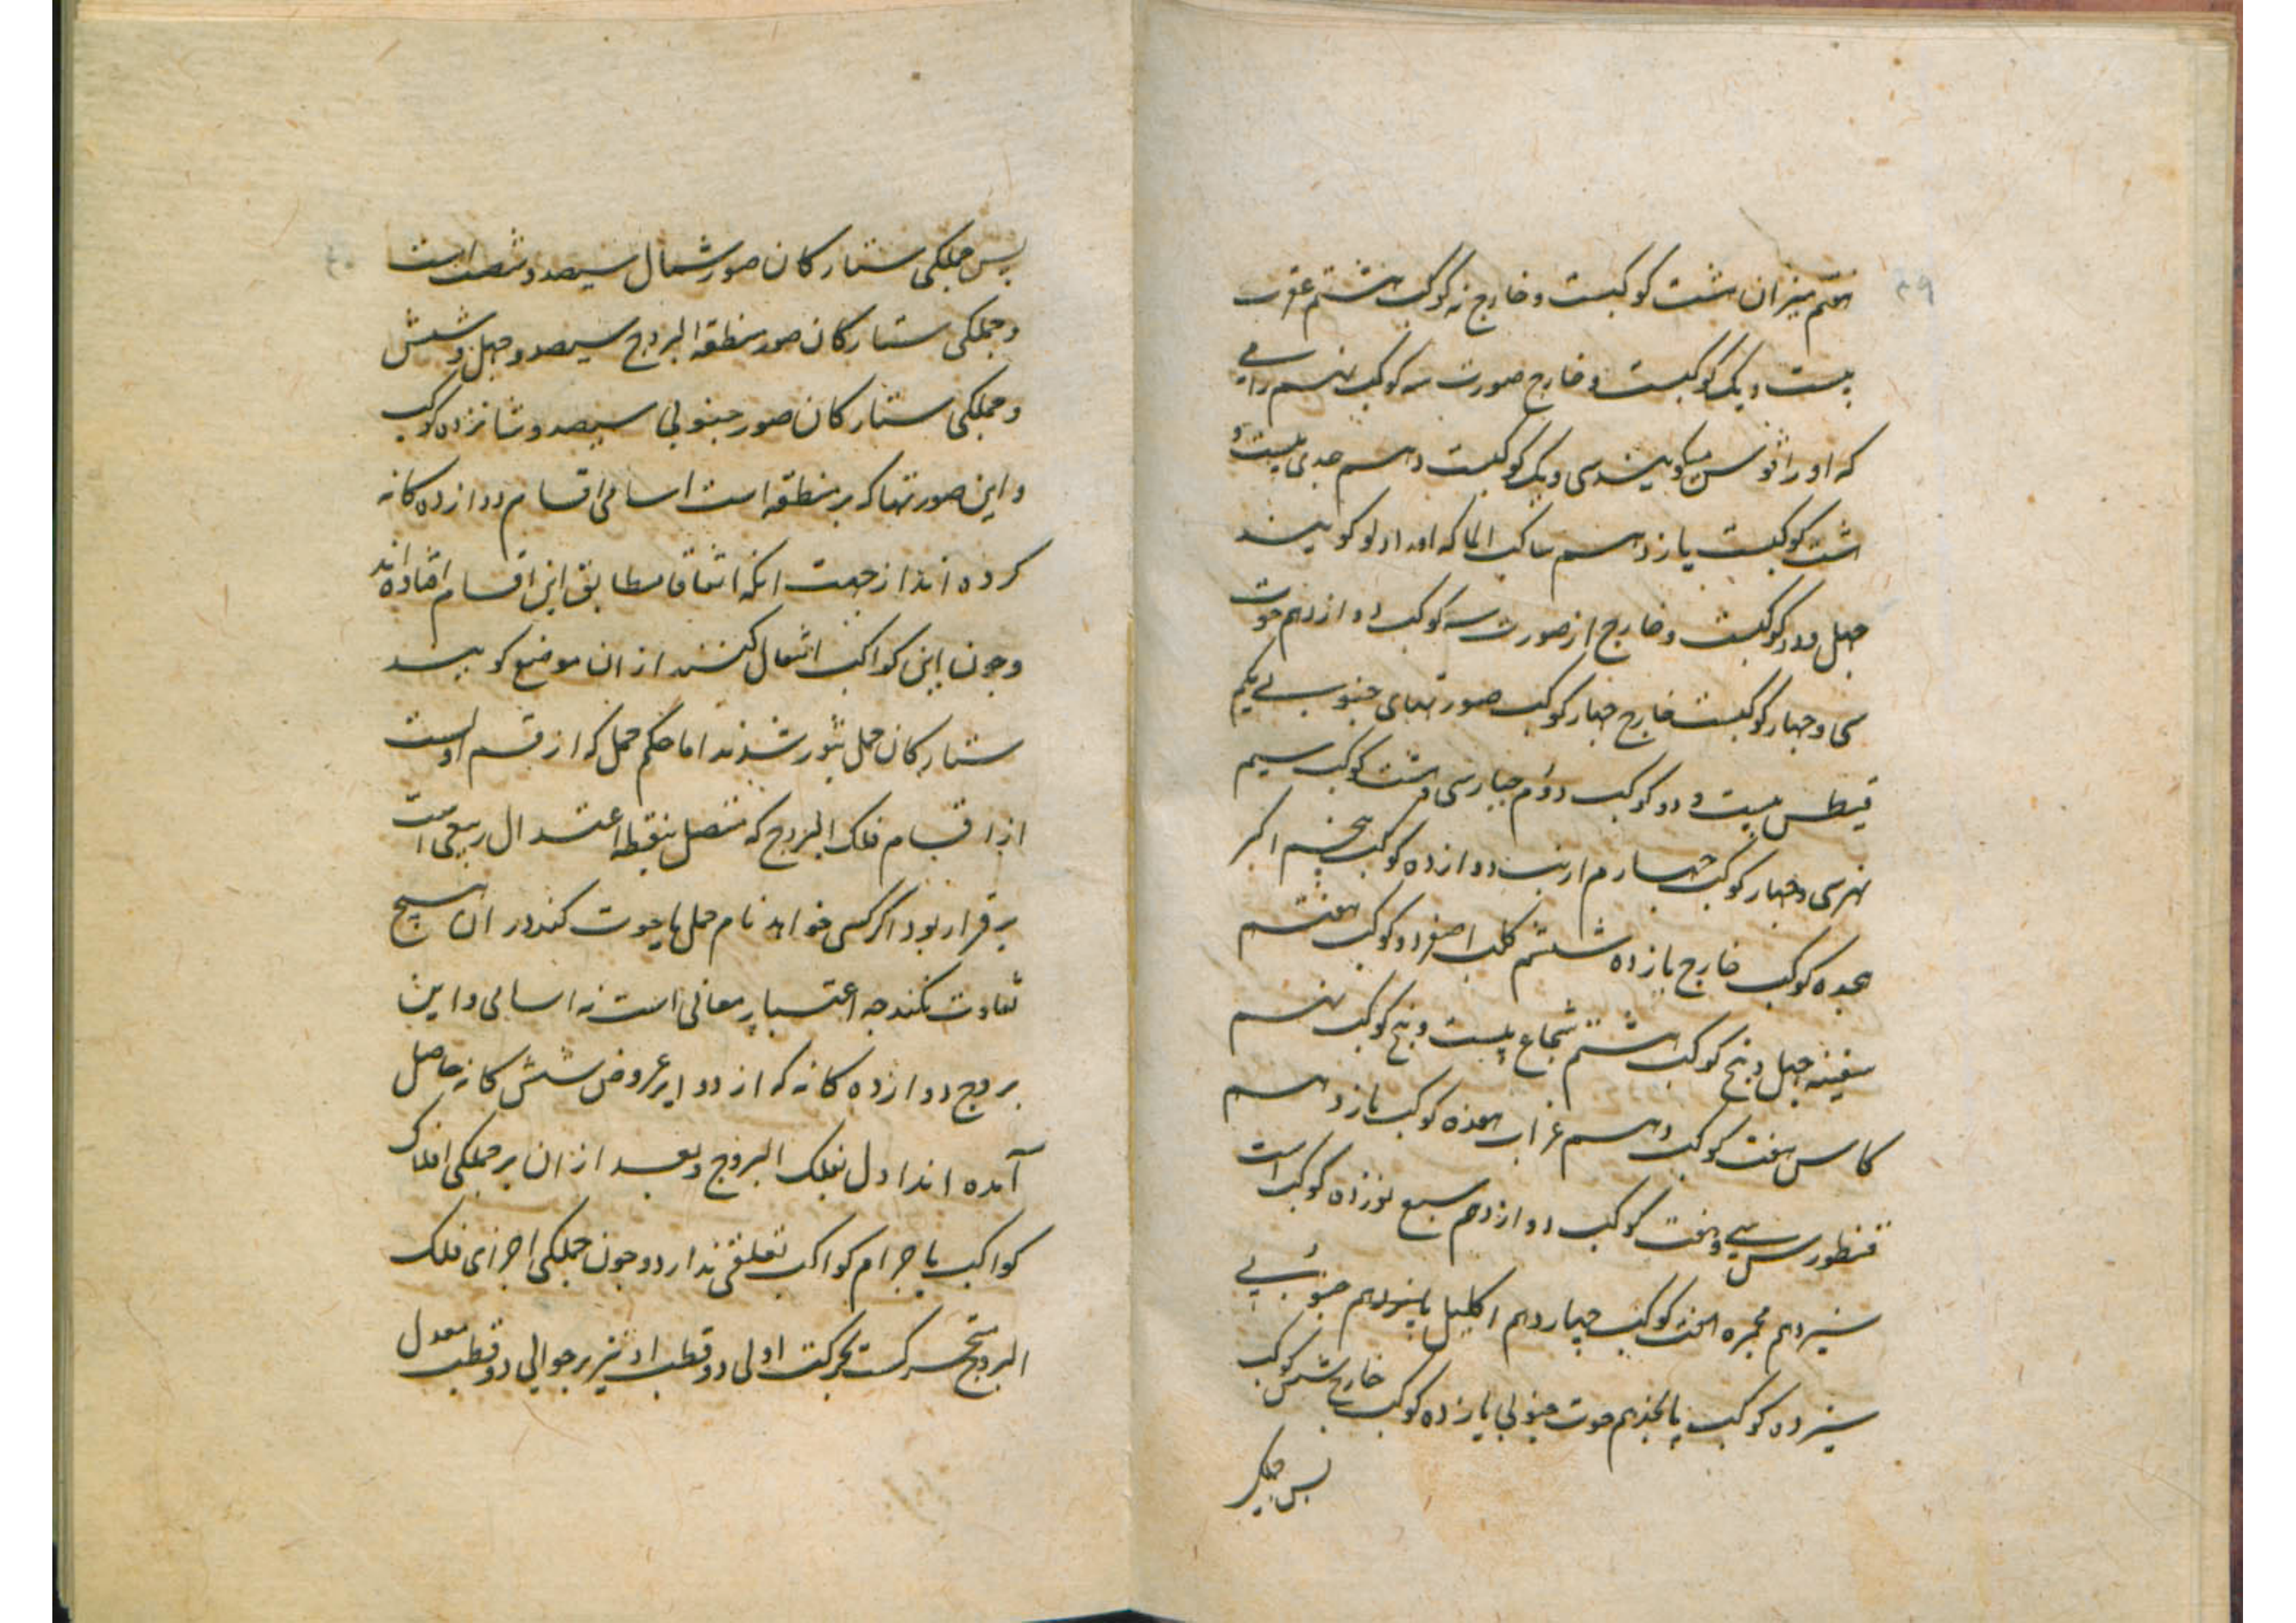 ۳۹
هفتم میزان هشت کوکبست و خارج نه کوکب هشتم عقرب
بیست و یک کوکبست و خارج صورت سه کوکب نهم رامی
که او را قوس میکویند سی و یک کوکبست دهم جدی بیست و
هشت کوکبست یازدهم ساکب الماکه او را دلو کویند
جهل و دو کوکبست و خارج از صورت سه کوکب دوازدهم حوت
سی و جهار کوکبست خارج جهار کوکب صورتهای جنوبی یکم
قیطس بیست و دو کوکب دوم جبار سی و هشت کوکب سیم
نهر سی و جهار کوکب جهارم ارنب دوازده کوکب پنجم اکبر
هجده کوکب خارج یازده ششم کلب اصغر دو کوکب هفتم
سفینه جهل و پنج کوکب هشتم شجاع بیست و پنج کوکب نهم
کاس هفت کوکب دهم غراب هفده کوکب یازدهم
قنطورس سی و هفت کوکب دوازدهم سبع نوزده کوکب است
سیزدهم مجمره هفت کوکب چهاردهم اکلیل جنوبی
سیزده کوکب پانجدهم حوت جنوبی یازده کوکب خارج شش کوکب
پس جملکی
پس جملکی ستارکان صور شمال سیصد و شصت است
و جملکی ستارکان صور منطقه البروج سیصد و جهل و شش
و جملکی ستارکان صور جنوبی سیصد و شانزده کوکب
و این صورتها که بر منطقه است اسامی اقسام دوازده کانه
کرده اند از جهت انکه اتفاقا مطابق این اقسام افتاده اند
و جون این کواکب انتقال کنند از ان موضع کویند
ستارکان حمل بثور شدند اما حکم حمل که از قسم اولست
از اقسام فلک البروج که متصل بنقطه اعتدال ربیعی است
برقرار بود اکر کسی خواهد نام حمل یا حوت کند در ان هیج
تفاوت نکند جه اعتبار معانی است نه اسامی و این
بروج دوازده کانه که از دوایر عروض شش کانه حاصل
آمده اند اول بفلک البروج و بعد از ان بر جملکی افلاک
کواکب باجرام کواکب تعلقی ندارد و جون جملکی اجزای فلک
البروج متحرکست بحرکت اولی دو قطب او نیز بر حوالی دو قطب معدل